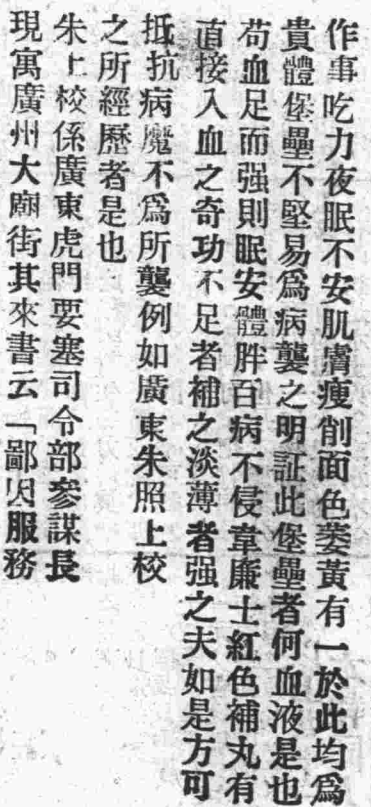 作事吃力夜眠不安肌膚瘦削面色萎黃有一於此均爲
貴體堡壘不堅易爲病襲之明証此堡壘者何血液是也
苟血足而强則眠安體胖百病不侵韋廉士紅色補丸有
直接入血之奇功不足者補之淡薄者强之夫如是方可
抵抗病魔不爲所襲例如廣東朱照上校
之所經歷者是也
朱上校係廣東虎門要塞司令部參謀長
現寓廣州大廟街其來書云「鄙人服務